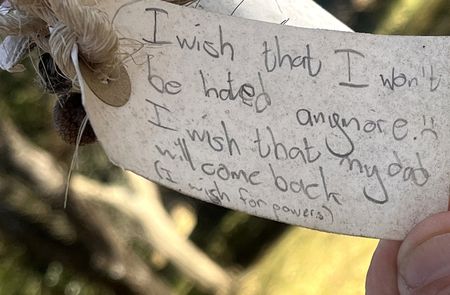 I wish that I won't
be hated anymore. :(
I wish that my dad
will come back
(I wish for powers)